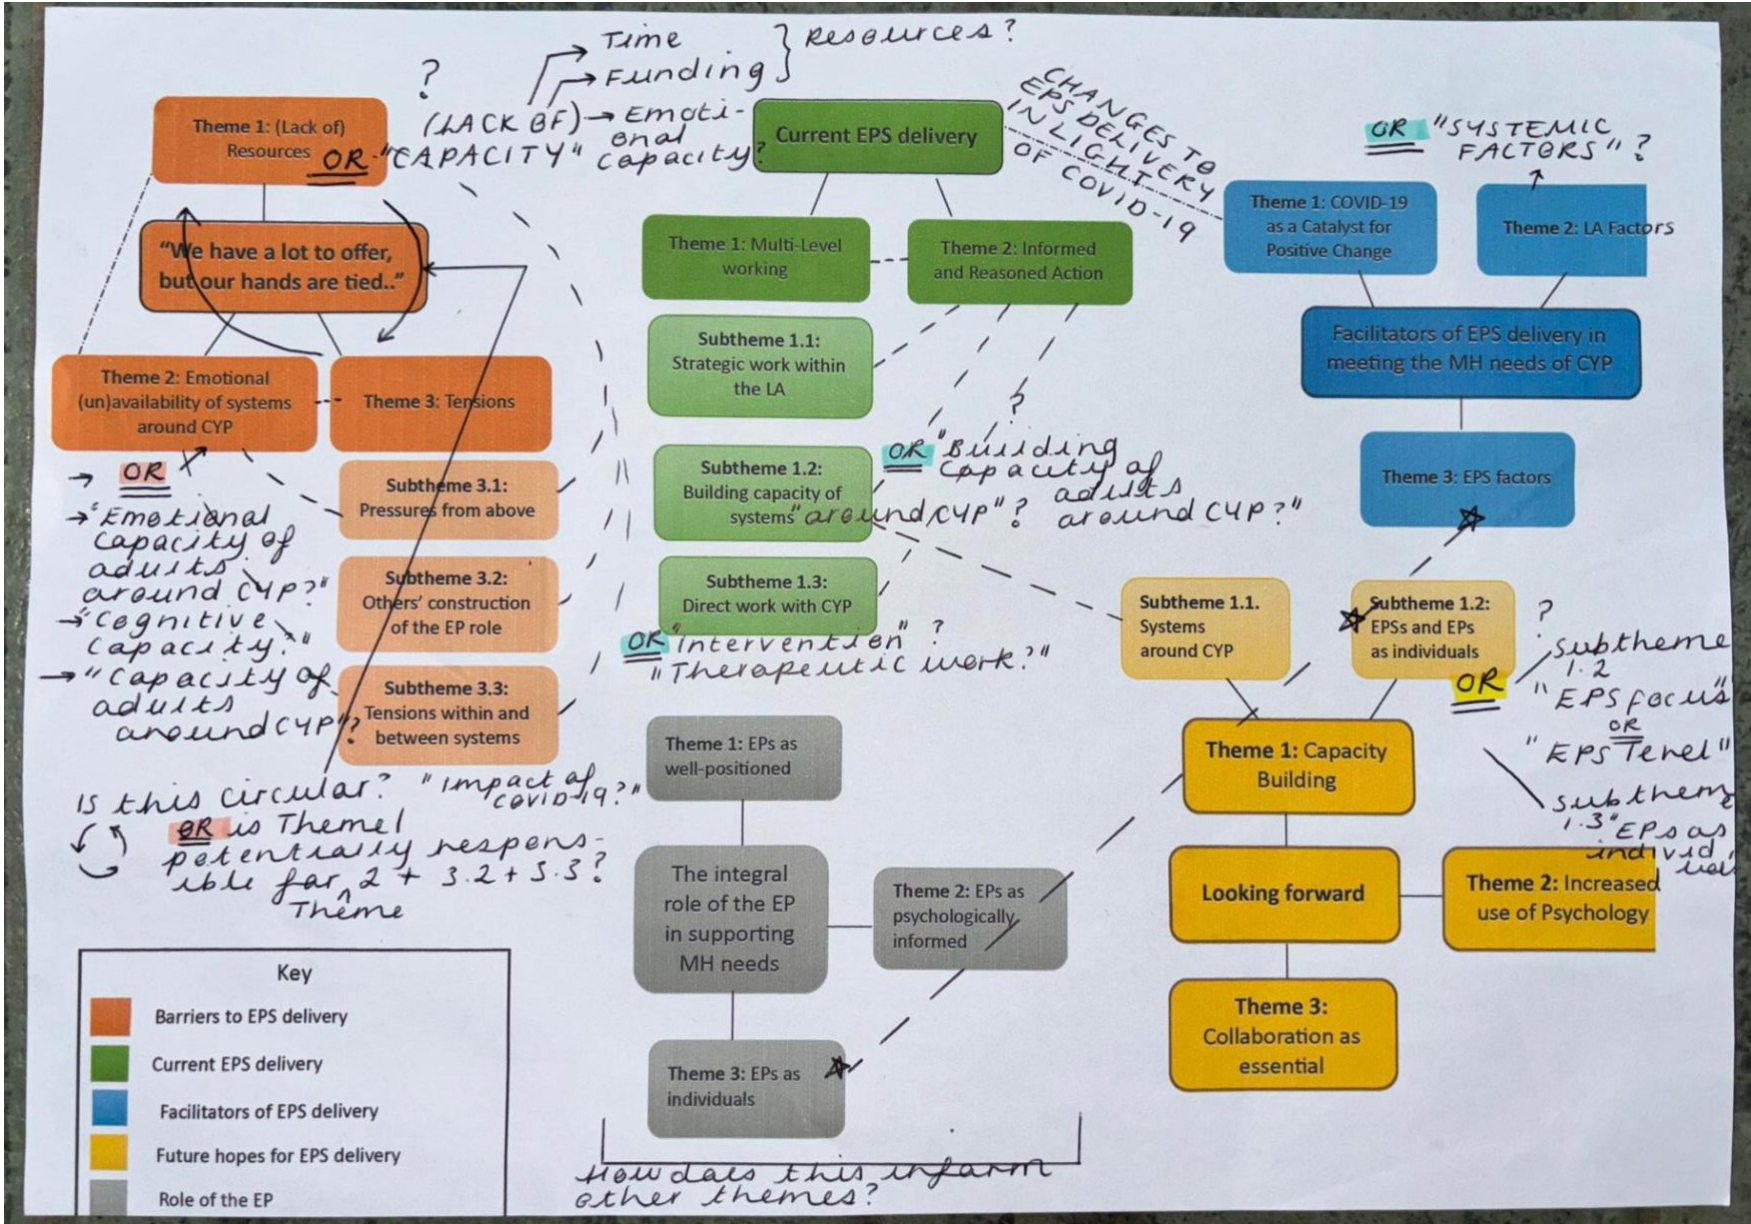 ?
(LACK OF)
Time
Funding
} Resources?
Emoti-
onal
capacity?
Theme 1: (Lack of)
Resources
OR "CAPACITY"
"We have a lot to offer,
but our hands are tied.."
Theme 2: Emotional
(un)availability of systems
around CYP
Theme 3: Tensions
Subtheme 3.1:
Pressures from above
Subtheme 3.2:
Others' construction
of the EP role
Subtheme 3.3:
Tensions within and
between systems
OR
"Emotional
capacity of
adults
around CYP?"
"Cognitive
capacity?"
"Capacity of
adults
around CYP"?
Is this circular?
OR is Theme 1
potentially respons-
ible for 2 + 3.2 + 3.3?
Theme
"Impact of
covid-19?"
Current EPS delivery
CHANGES TO
EPS DELIVERY
IN LIGHT
OF COVID-19
Theme 1: Multi-Level
working
Theme 2: Informed
and Reasoned Action
Subtheme 1.1:
Strategic work within
the LA
Subtheme 1.2:
Building capacity of
systems "around CYP"?
?
OR "Building
capacity of
adults
around CYP?"
Subtheme 1.3:
Direct work with CYP
OR "intervention" ?
"Therapeutic work?"
OR "SYSTEMIC
FACTORS" ?
Theme 1: COVID-19
as a Catalyst for
Positive Change
Theme 2: LA Factors
Facilitators of EPS delivery in
meeting the MH needs of CYP
Theme 3: EPS factors
Subtheme 1.1.
Systems
around CYP
Subtheme 1.2:
EPSs and EPs
as individuals
OR
?
Subtheme
1.2
"EPS focus"
OR
"EPS Level"
Subtheme
1.3 "EPs as
individ
uals
Theme 1: Capacity
Building
Looking forward
Theme 2: Increased
use of Psychology
Theme 3:
Collaboration as
essential
Theme 1: EPs as
well-positioned
The integral
role of the EP
in supporting
MH needs
Theme 2: EPs as
psychologically
informed
Theme 3: EPs as
individuals
How does this inform
other themes?
Key
Barriers to EPS delivery
Current EPS delivery
Facilitators of EPS delivery
Future hopes for EPS delivery
Role of the EP